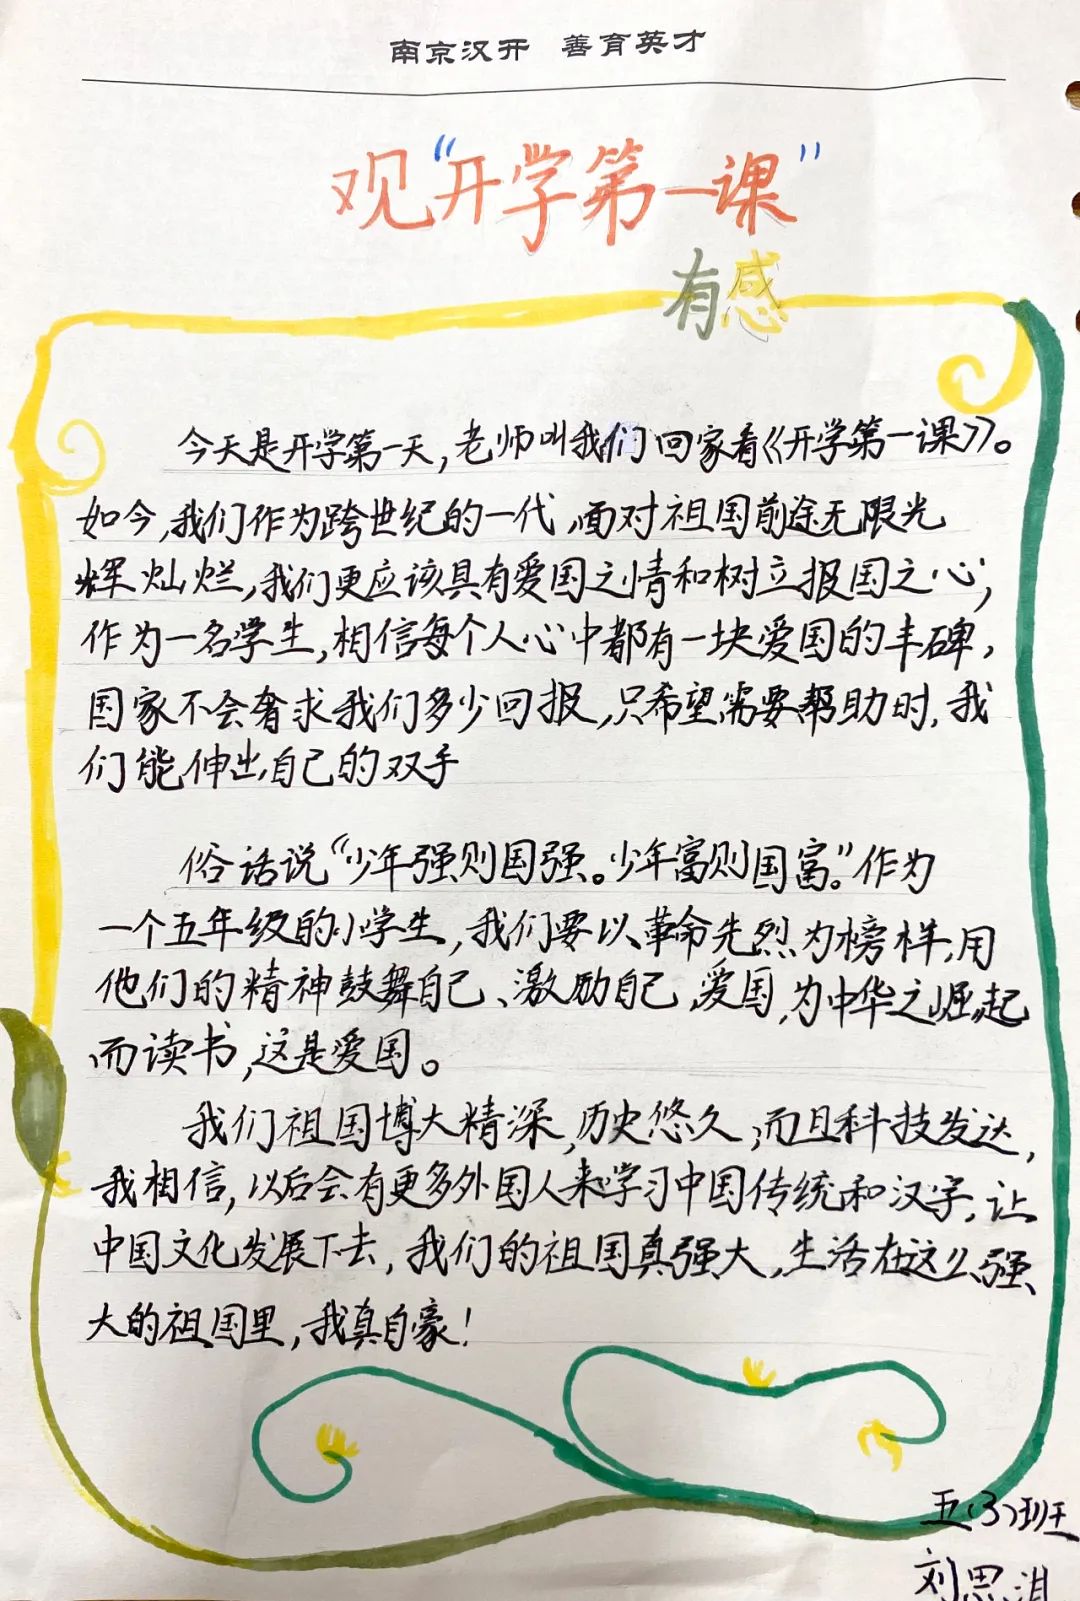 南京汉开 善育英才
观“开学第一课”
有感
今天是开学第一天，老师叫我们回家看《开学第一课》。
如今，我们作为跨世纪的一代，面对祖国前途无限光
辉灿烂，我们更应该具有爱国之情和树立报国之心，
作为一名学生，相信每个人心中都有一块爱国的丰碑，
国家不会奢求我们多少回报，只希望需要帮助时，我
们能伸出自己的双手
俗话说“少年强则国强。少年富则国富。”作为
一个五年级的小学生，我们要以革命先烈为榜样，用
他们的精神鼓舞自己、激励自己，爱国，为中华之崛起
而读书，这是爱国。
我们祖国博大精深，历史悠久，而且科技发达，
我相信，以后会有更多外国人来学习中国传统和汉字，让
中国文化发展下去，我们的祖国真强大，生活在这么强
大的祖国里，我真自豪！
五（3）班
刘思